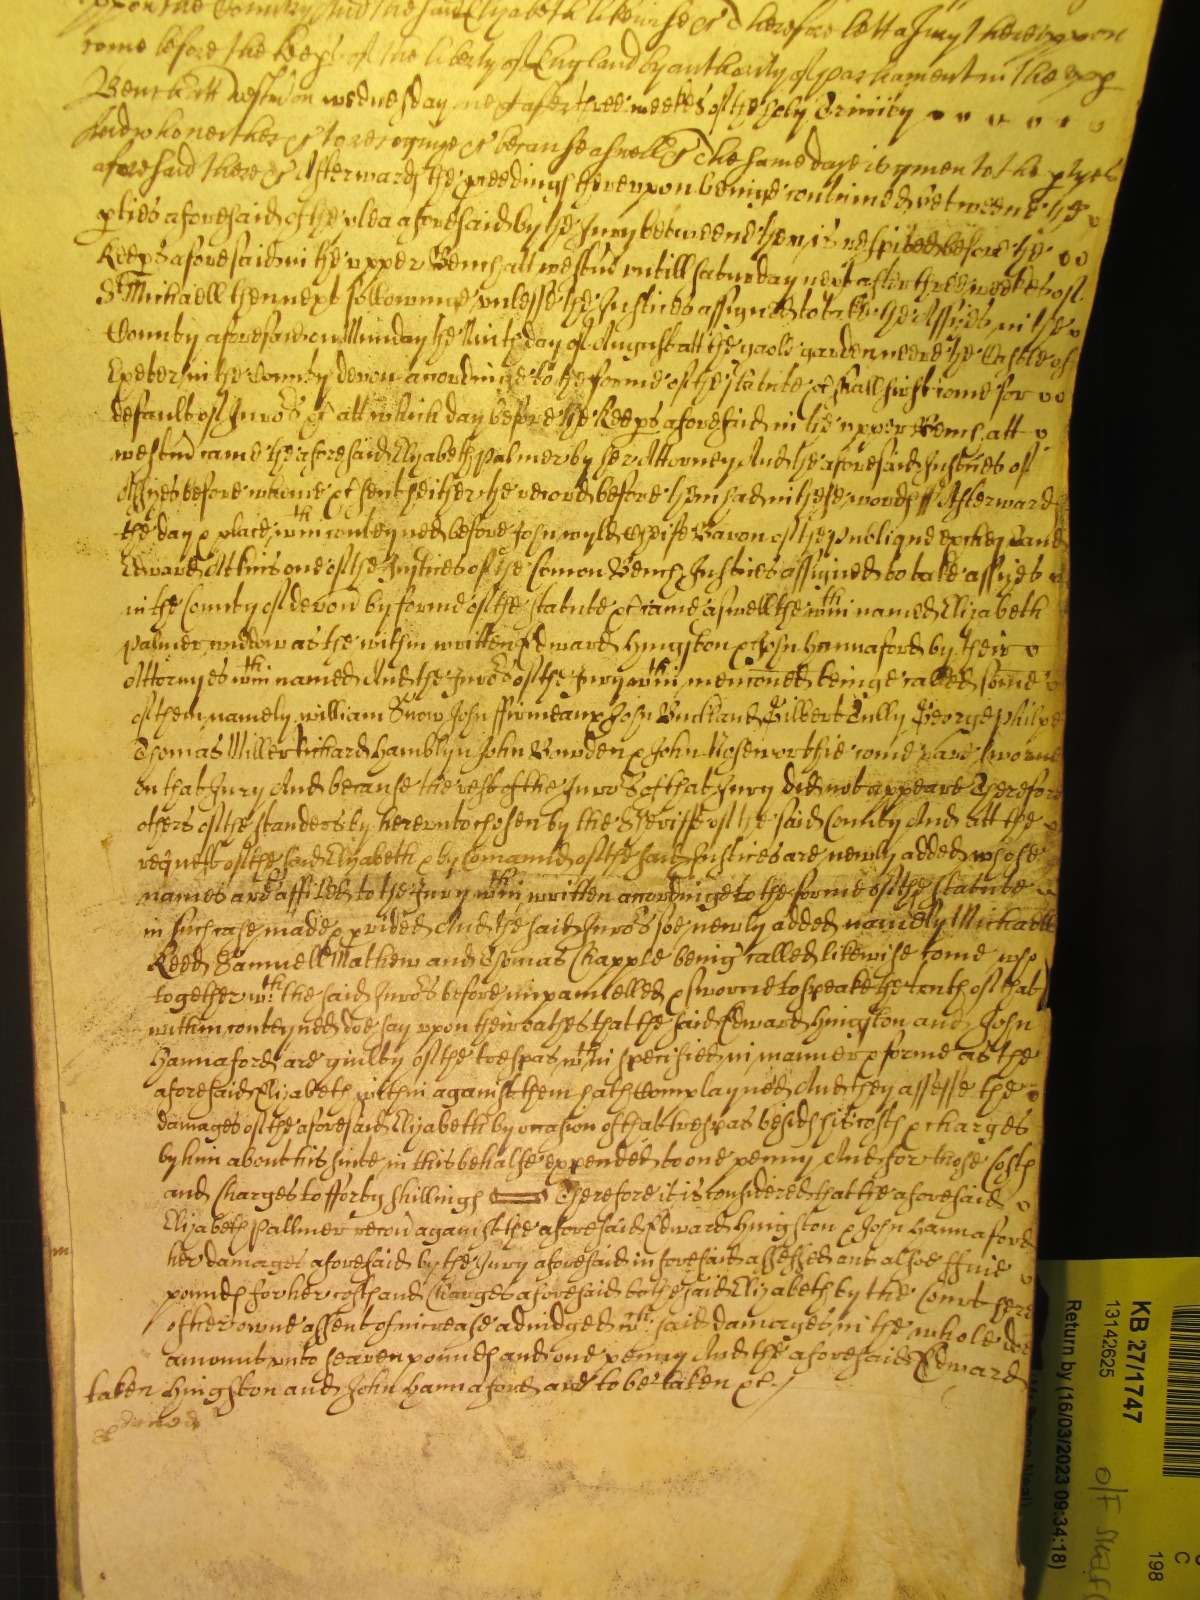 uppon the Country And the said Elizabeth likewise &c Therefore lett a Jury thereuppon
come before the Keeps of the liberty of England by authority of parliament in the upp
Bench att Westm on wednesday next after three weekes of the holy Trinity
And who neither &c to recognize &c because aswell &c The same day is given to the ptyes
aforesaid there &c Afterwards the pceedings thereuppon beinge continued betweene the
pties aforesaid of the plea aforesaid by the Jury betweene them is respited before the
Keeps aforesaid in the upper Bench att westm untill saturday next after three weekes of
St Michaell then next followinge unlesse the Justices assigned to take the Assises in the
County aforesaid on Munday the Ninth day of August att the gaole garden neere the Castle of
Exeter in the County devon accordinge to the forme of the statute &c shall first come for
default of Juro's &c att which day before the Keeps aforesaid in the upper Bench att
westm came the aforesaid Elizabeth Palmer by her Attorney And the aforesaid Justices of
Assizes before whome &c sent hither the record before them had in these words ss Afterward
the day & place wthin conteyned before John wyld Cheife Baron of the publique exchequer and
Edward Atkins one of the Justices of the Comon Bench Justices assigned to take assizes
in the County of devon by forme of the statute &c came aswell the wthin named Elizabeth
Palmer widdow as the within written Edward Hingston & John Hannaford by their
Attornyes wthin named And the Juro's of the Jury wthin menconed beinge called some
of them namely william Snow John ffirmeaux John Buckland Gilbert Tully George philpe
Thomas Miller Richard Hamblyn John Bowden & John Noseworthie come & are sworne
on that Jury And because the rest of the Juro's of that Jury did not appeare Therefore
others of the standersby hereunto chosen by the Sheriffe of the said County And att the
request of the said Elizabeth & by comannd of the said Justices are newly added whose
names are affiled to the Jury wthin written accordinge to the forme of the statute
in such case made & pvided And the said Juro's soe newly added namely Michaell
Reed Samuell Mathew and Thomas Chapple being called likewise come who
together wth the said Juro's before impannelled & sworne to speake the truth of that
within conteyned doe say uppon their oathes that the said Edward Hingston and John
Hannaford are guilty of the trespas wthin specified in manner & forme as the
aforesaid Elizabeth within against them hath Complayned And they assesse the
damages of the aforesaid Elizabeth by occasion of that trespas besids his costs & charges
by him about his suite in this behalfe expended to one penny And for those Costs
and Charges to fforty shillings Therefore it is considered that the aforesaid
Elizabeth Pallmer recov against the aforesaid Edward Hingston & John Hannaford
her damages aforesaid by the Jury aforesaid in forme aforesaid assessed and alsoe ffive
pounds for her costs and Charges aforesaid to the said Elizabeth by the Court here
of her owne assent of increase adiudged wch said damages in the whole doe
amount unto seaven pounds and one penny And the aforesaid Edward
taken Hingston and John Hannaford are to be taken &c
KB 27/1747
13142625
Return by (16/03/2023 09:34:18)
198
C